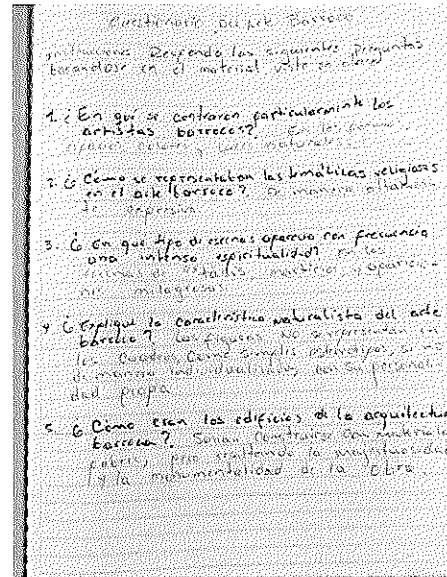 Cuestionario Del Arte Barroco
Instrucciones Responda las siguientes preguntas
basandose en el material visto en clase
1. ¿En qué se centraron particularmente los
artistas barrocos? En las formas,
colores, luces naturales
2. ¿Cómo se representaban las temáticas religiosas
en el arte barroco? De manera altamen-
te expresiva
3. ¿En qué tipo de escenas aparecia con frecuencia
una intensa espiritualidad? En las
escenas de éxtasis, martirios y aparicio-
nes milagrosas
4. ¿Explique la característica naturalista del arte
barroco? Las figuras No se representan en
los Cuadros Como simples estereotipos, si no
de manera individualizada, con su personali-
dad propia
5. ¿Cómo eran los edificios de la arquitectura
barroca? Solían Construirse Con materiales
pobres, pero resaltando la majestuosidad
y la monumentalidad de la Obra